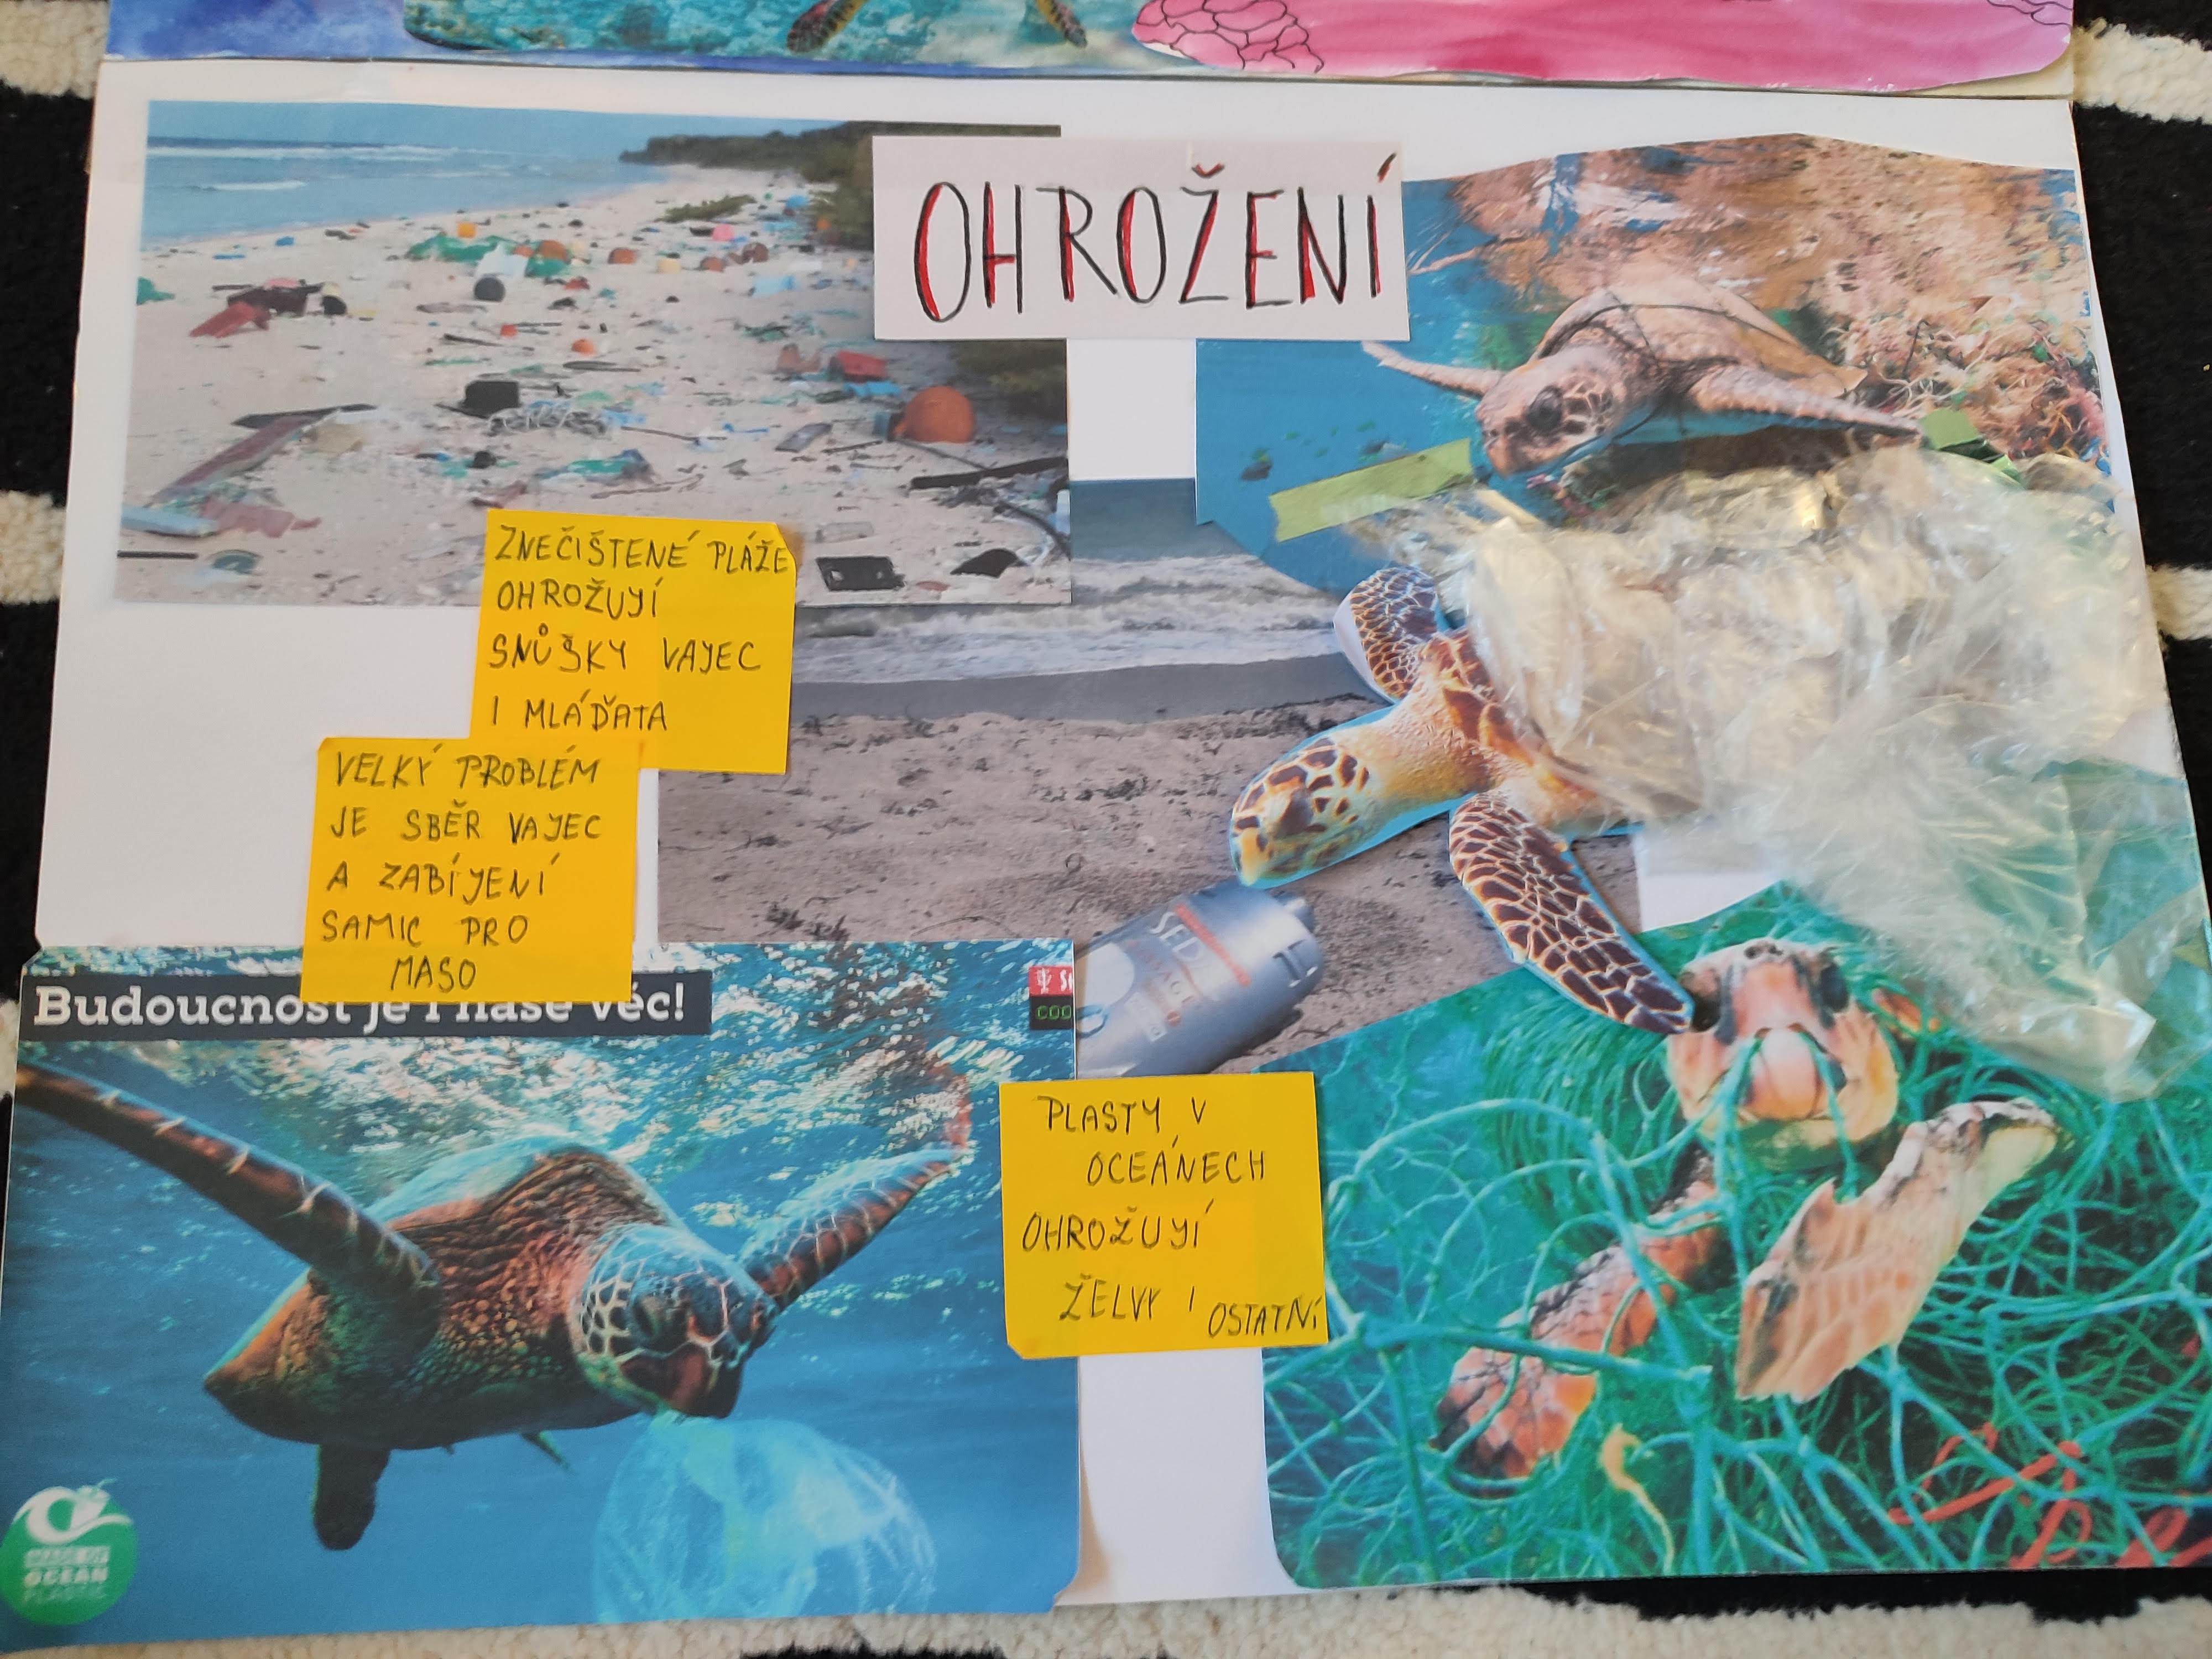 OHROŽENÍ
ZNEČIŠTENÉ PLÁŽE
OHROŽUJÍ
SNŮŠKY VAJEC
I MLÁĎATA
VELKÝ PROBLÉM
JE SBĚR VAJEC
A ZABÍJENÍ
SAMIC PRO
MASO
Budoucnost je i naše věc!
PLASTY V
OCEÁNECH
OHROŽUJÍ
ŽELVY I OSTATNÍ
MADE OF
OCEAN
PLASTIC